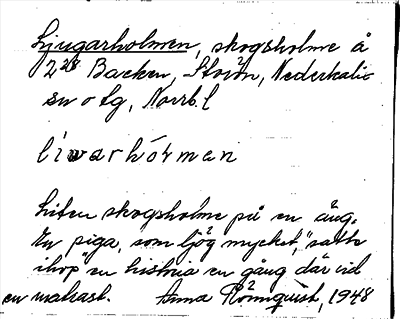 Ljugarholmen, skogsholme å
2²⁸ Backen, Storön, Nederkalix
sn o tg, Norrb. l
liwarhórman
Liten skogsholme på en äng.
En piga, som ljög mycket, "satte
ihop" en historia en gång där vid
en mahast. Anna Rönnquist, 1948